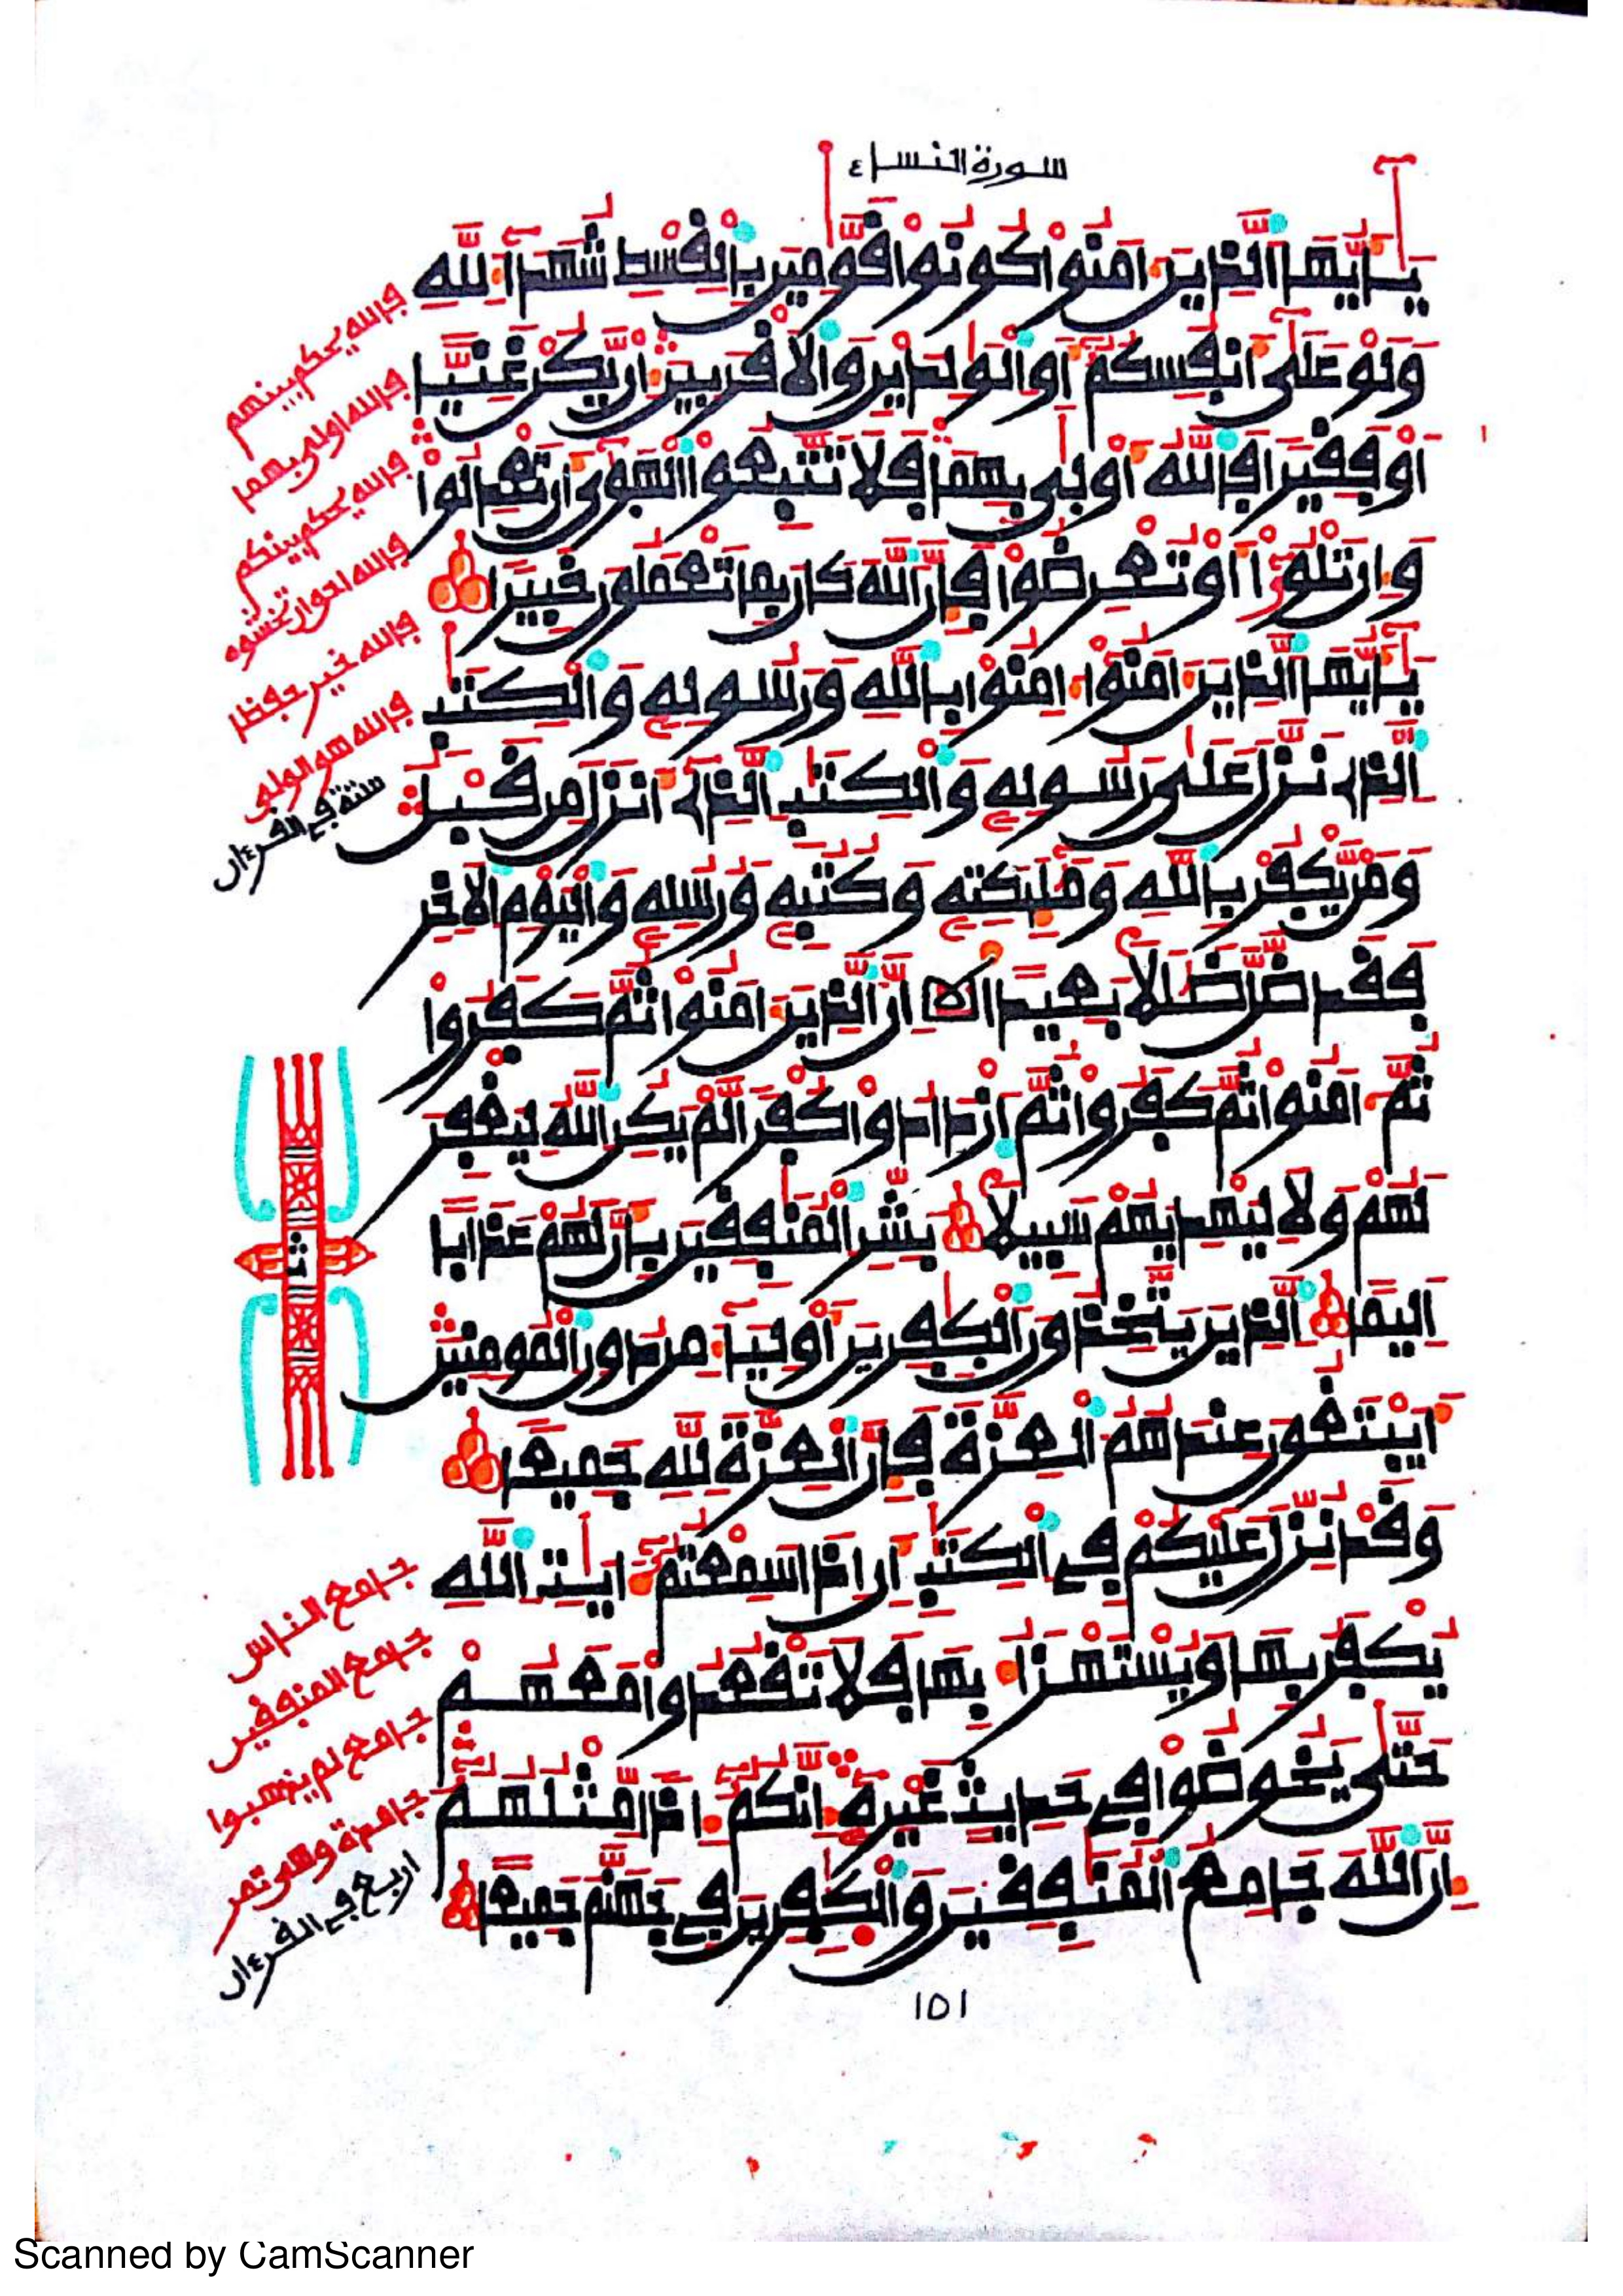 سورة النساء ٤
يـأيها الذين ءامنوا كونوا قومين بالقسط شهدآء لله
ولو على أنفسكم أو الولدين والاقربين إن يكن غنيا
أو فقيرا فالله أولى بهما فلا تتبعوا الهوى أن تعدلوا
وإن تلوۥا أو تعرضوا فإن الله كان بما تعملون خبيرا
يـأيها الذين ءامنوا ءامنوا بالله ورسوله والكتب
الذے نزل على رسوله والكتب الذے أنزل من قبل
ومن يكفر بالله ومليكته وكتبه ورسله واليوم الاخر
فقد ضل ضللا بعيدا إن الذين ءامنوا ثم كفروا
ثم ءامنوا ثم كفروا ثم ازدادوا كفرا لم يكن الله ليغفر
لهم ولا ليهديهم سبيلا بشر المنفقين بأن لهم عذابا
اليما الذين يتخذون الكفرين أوليآء من دون المومنين
أيبتغون عندهم العزة فإن العزة لله جميعا
وقد نزل عليكم في الكتب أن إذا سمعتم ءايت الله
يكفر بها ويستهزأ بها فلا تقعدوا معهم
حتى يخوضوا في حديث غيره إنكم إذا مثلهم
إن الله جامع المنفقين والكفرين في جهنم جميعا
فالله يحكم بينهم
فالله اولى بهما
فالله يحكم بينكم
فالله احق ان تخشوه
فالله خير حفظا
فالله هو الولي
ستة في القرءان
ث
جامع الناس
جامع المنفقين
جامع لم يذهبوا
اربع في القرءان
١٥١
Scanned by CamScanner